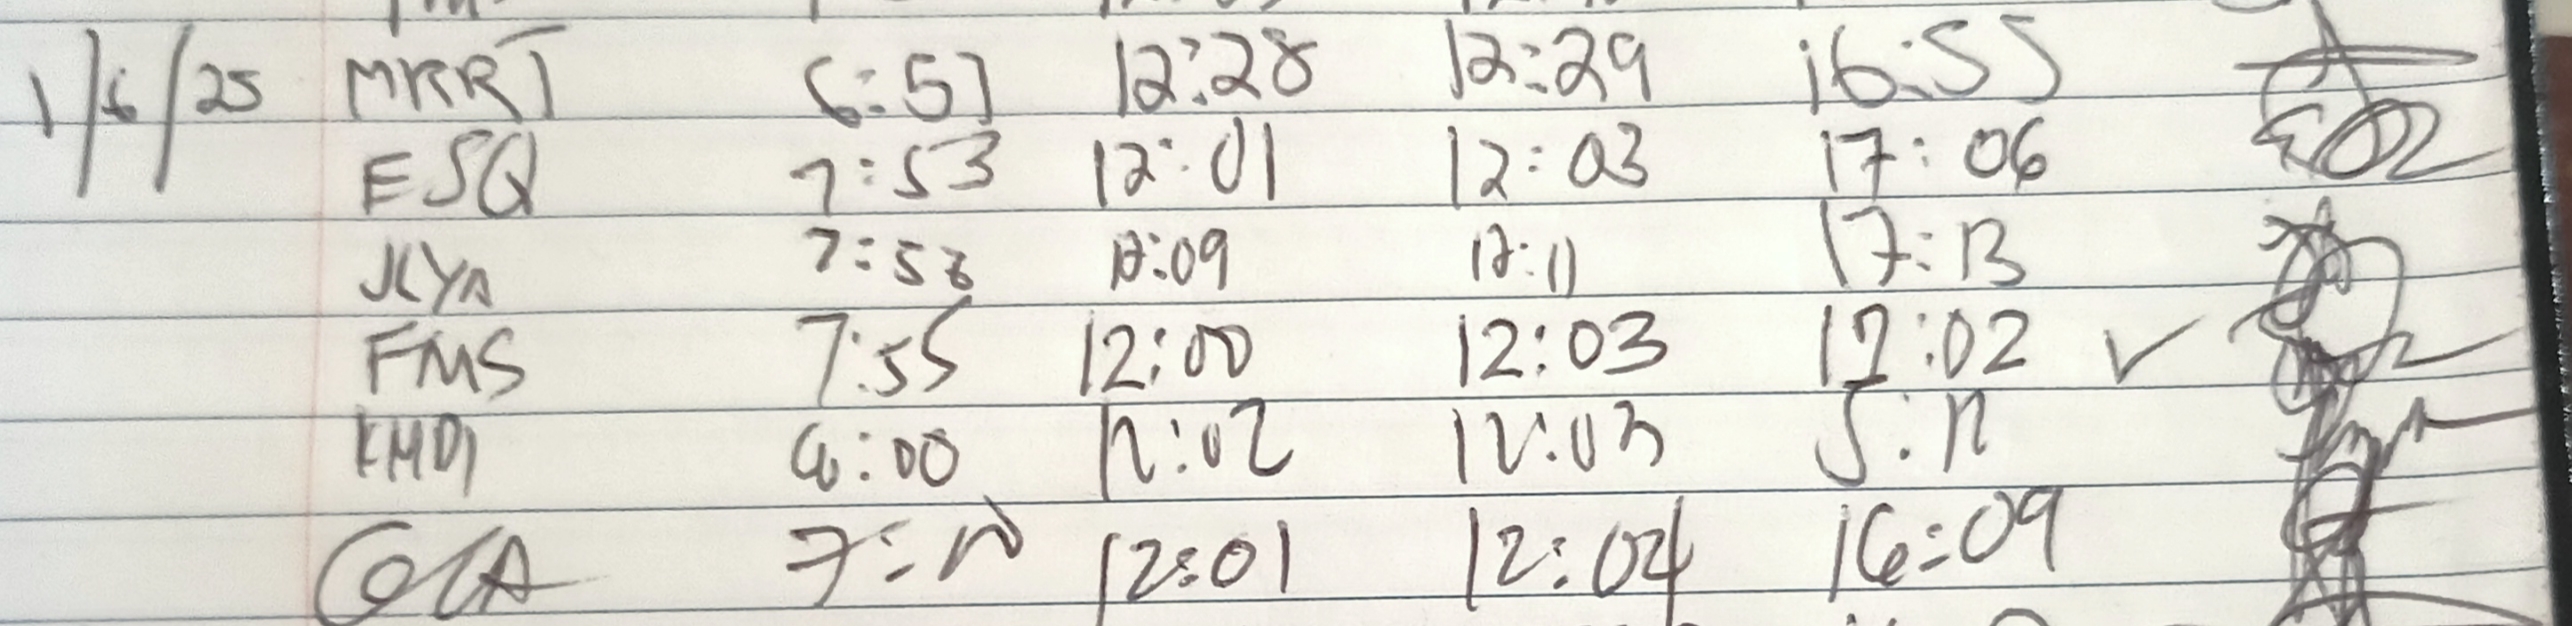 1/6/25 MRRT 6:57 12:28 12:29 16:55
ESQ 7:53 12:01 12:03 17:06
7:58 12:09 12:11 17:13
FMS 7:55 12:00 12:03 17:02 ✓
KHDI 12:02 12:03 5:12
12:01 12:04 16:09